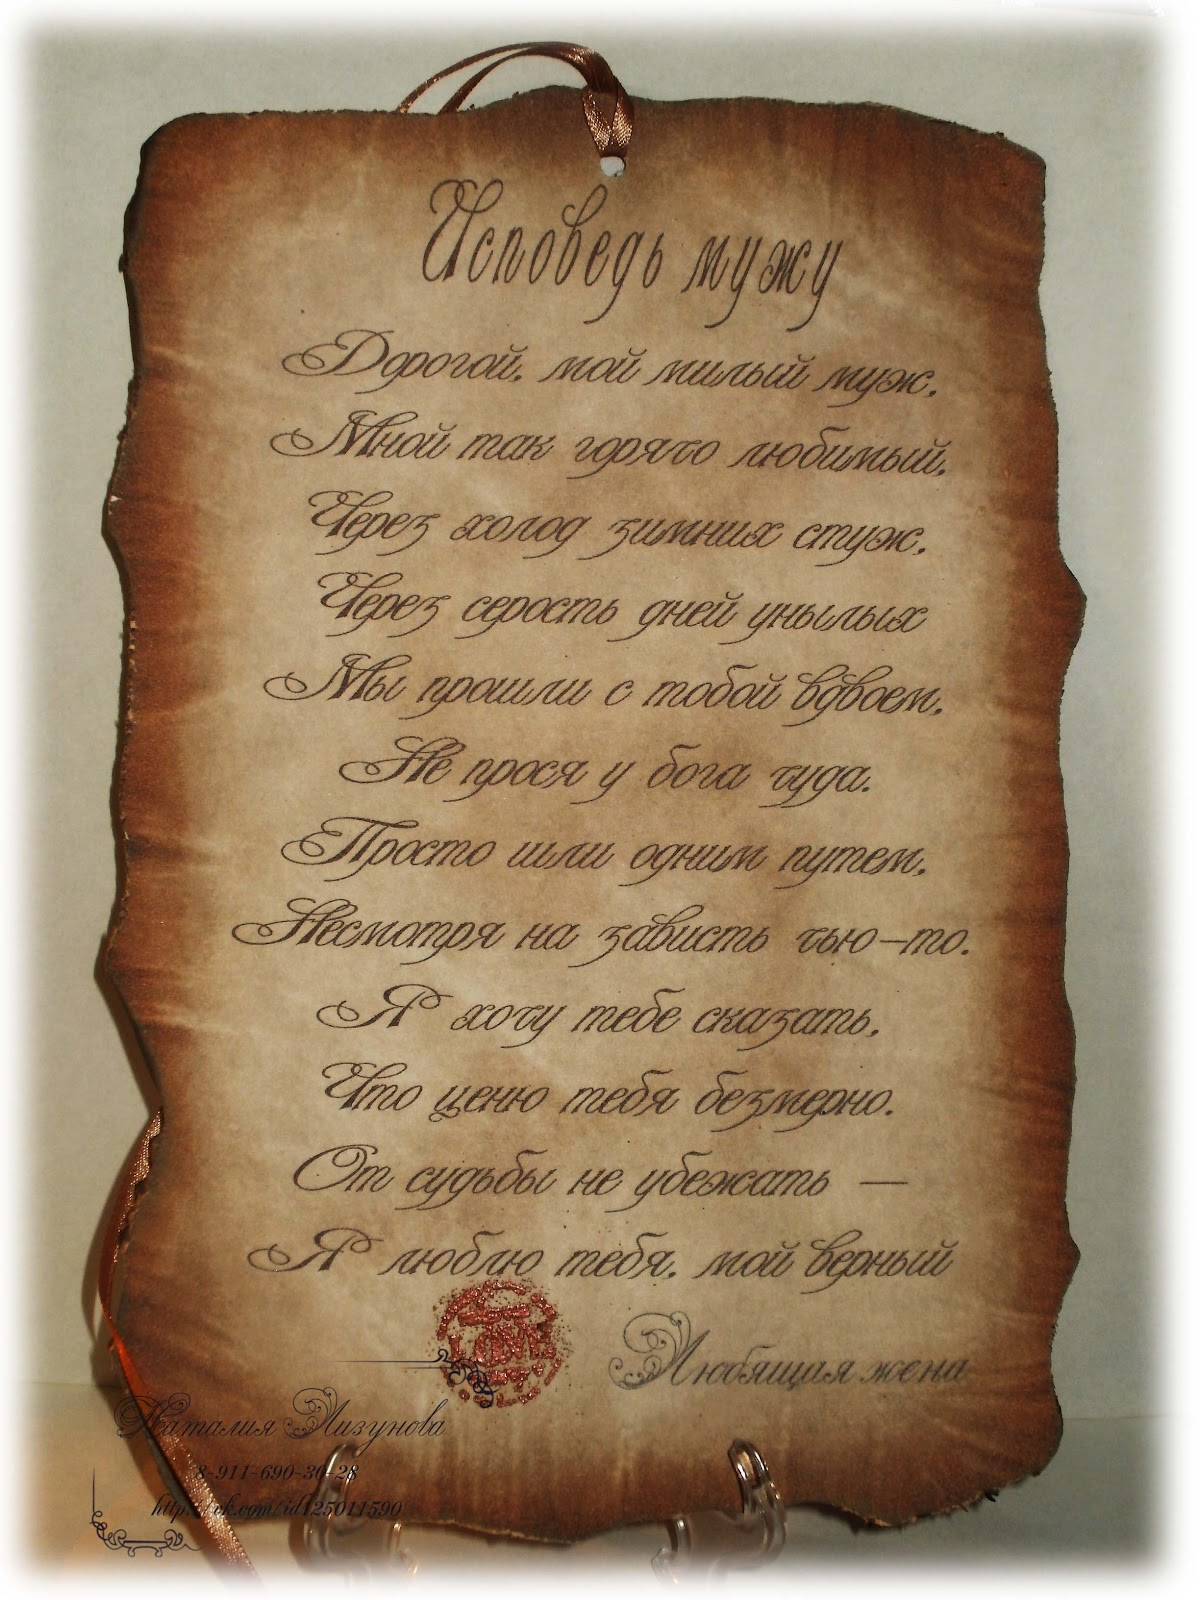 Исповедь мужу
Дорогой, мой милый муж,
Мной так горячо любимый,
Через холод зимних стуж,
Через серость дней унылых
Мы прошли с тобой вдвоем,
Не прося у бога чуда.
Просто шли одним путем,
Несмотря на зависть чью-то.
Я хочу тебе сказать,
Что ценю тебя безмерно.
От судьбы не убежать —
Я люблю тебя, мой верный
LOVE
Любящая жена
Наталия Лизунова
8-911-690-30-28
http://vk.com/id125011590